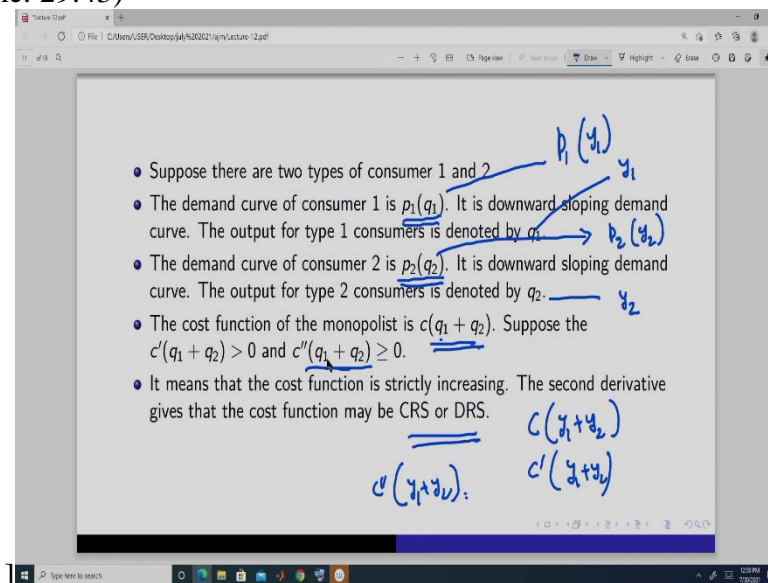 ie: 29:43)
"Lecture-12.pdf
File | C:/Users/USER/Desktop/july%202021/ajm/Lecture-12.pdf
11 of 18
Page view | Read aloud | Draw Highlight Erase
• Suppose there are two types of consumer 1 and 2
p₁(y₁)
y₁
• The demand curve of consumer 1 is p₁(q₁). It is downward sloping demand
curve. The output for type 1 consumers is denoted by q₁.
p₂(y₂)
• The demand curve of consumer 2 is p₂(q₂). It is downward sloping demand
curve. The output for type 2 consumers is denoted by q₂.
y₂
• The cost function of the monopolist is c(q₁ + q₂). Suppose the
c′(q₁ + q₂) > 0 and c″(q₁ + q₂) ≥ 0.
• It means that the cost function is strictly increasing. The second derivative
gives that the cost function may be CRS or DRS.
C(y₁+y₂)
c′(y₁+y₂)
c″(y₁+y₂).
]
Type here to search
12:50 PM
7/30/2021